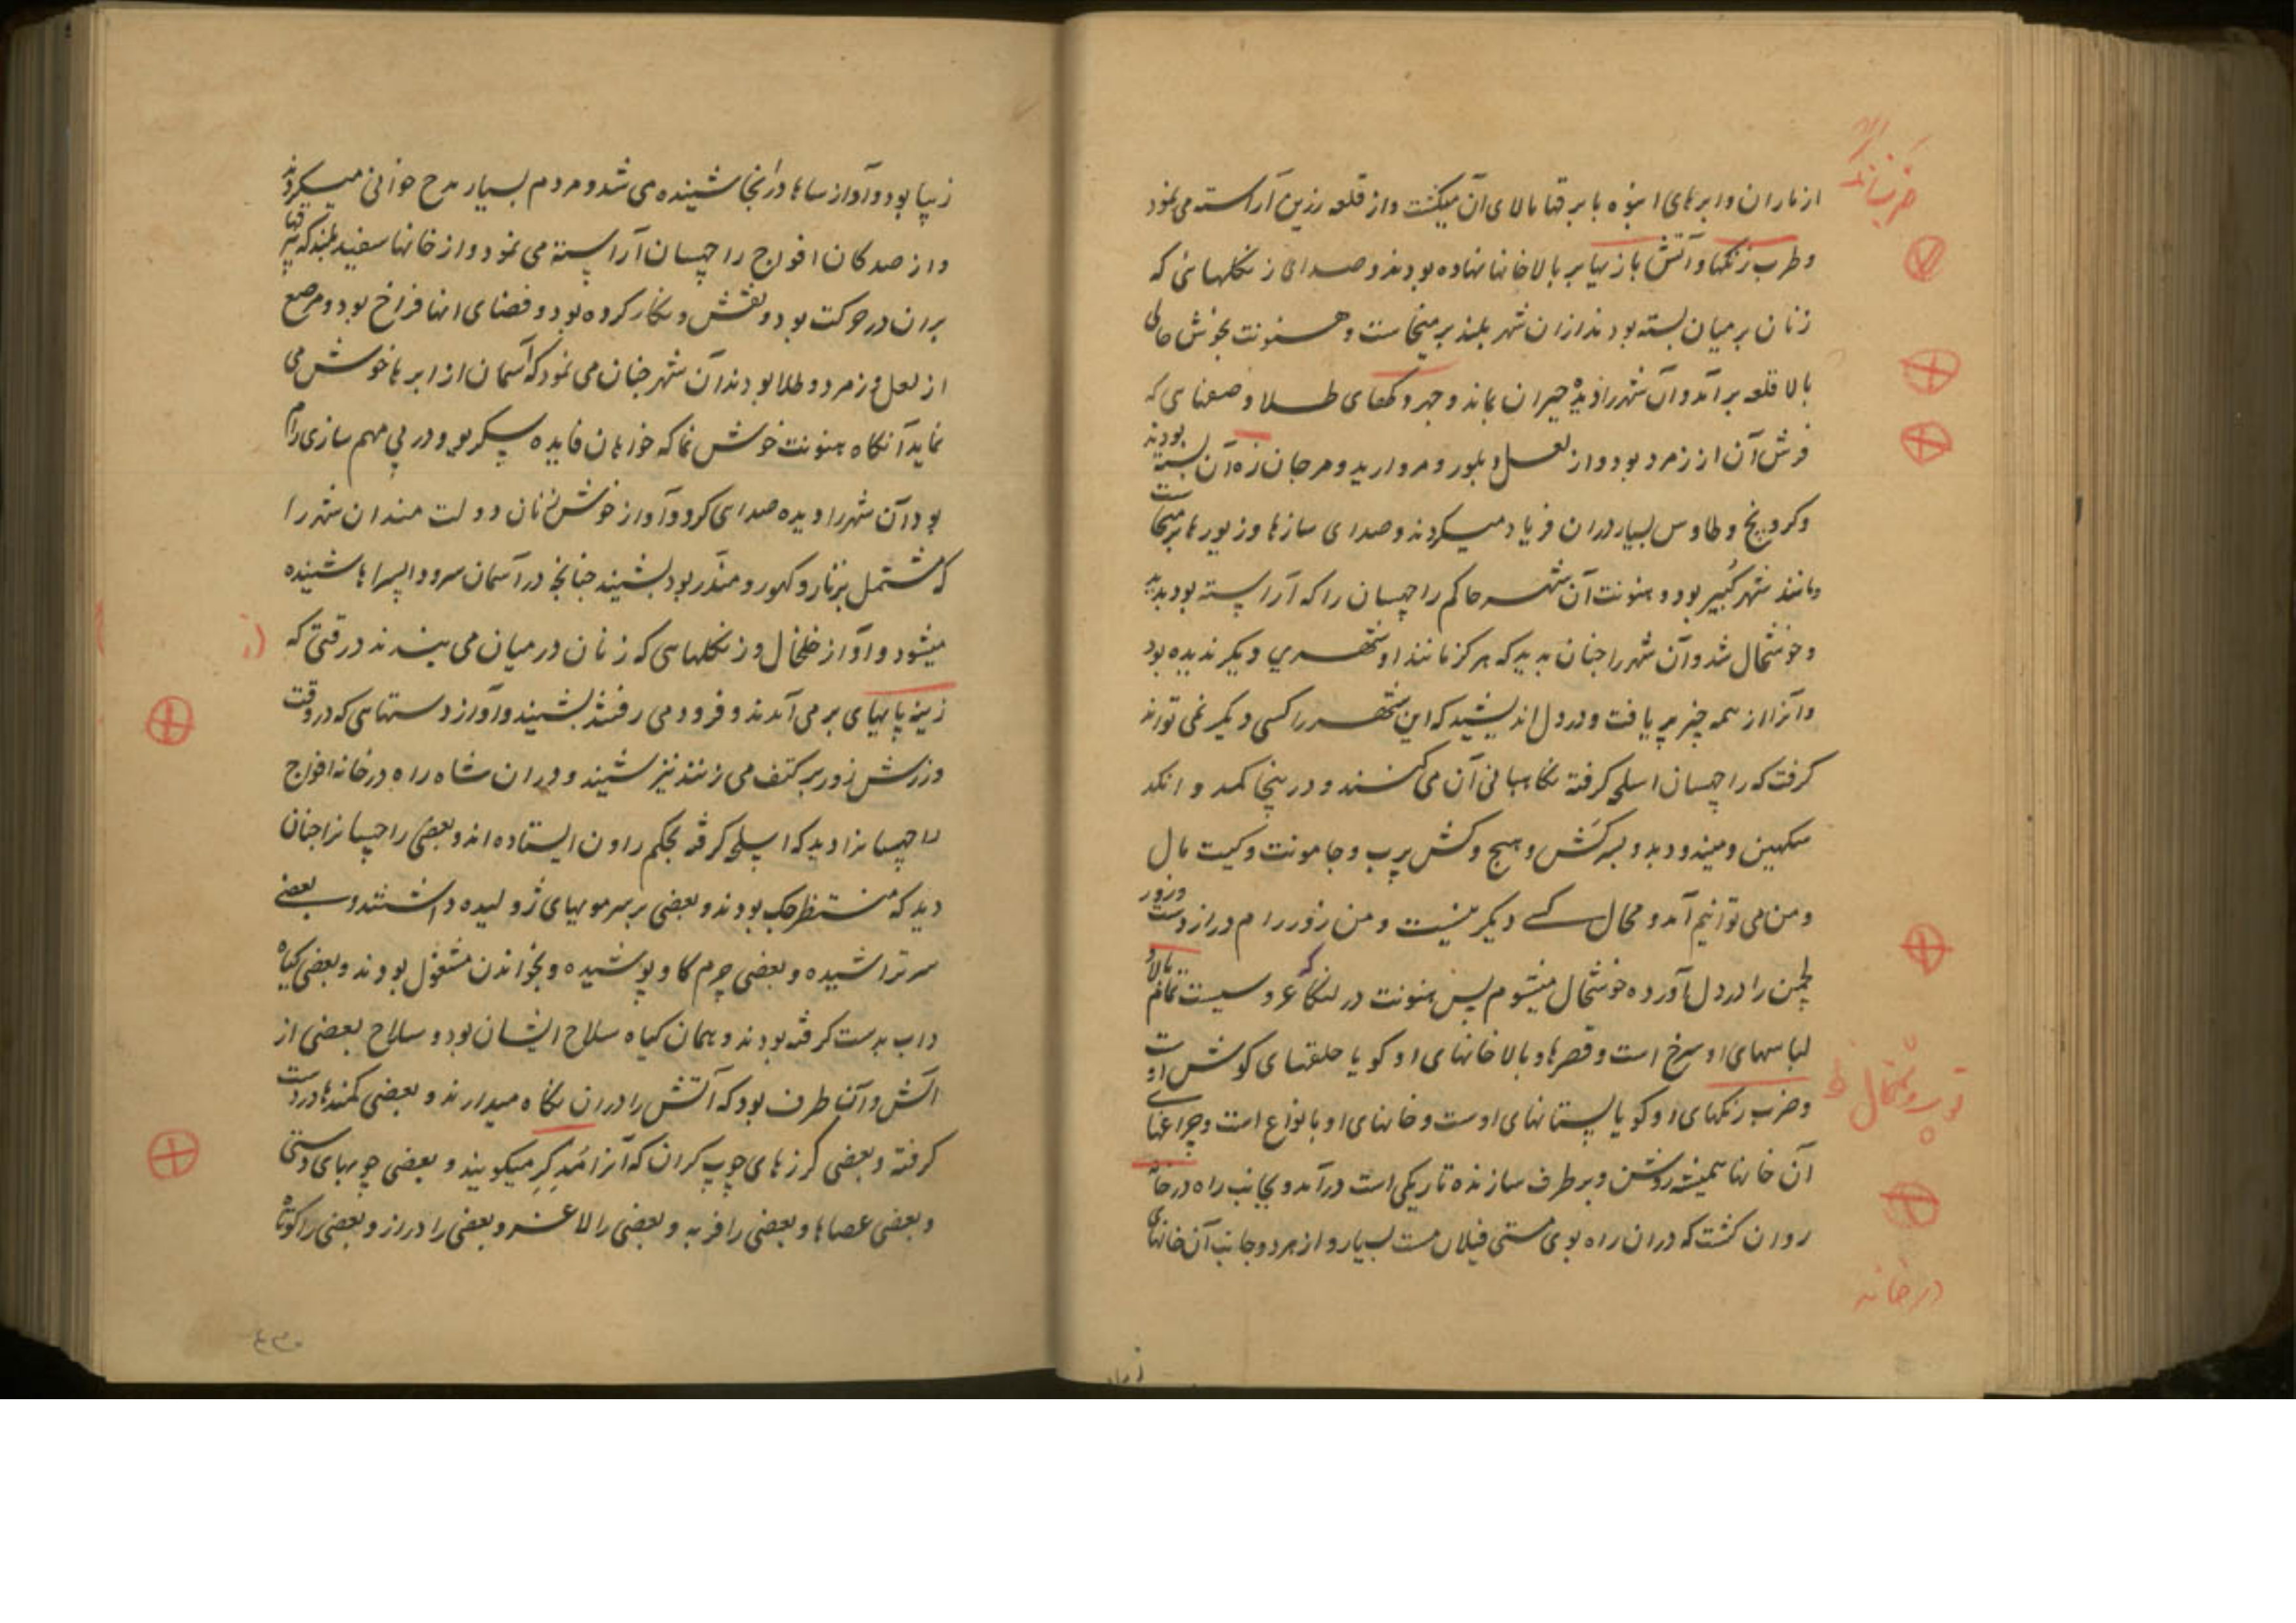 از باران و ابرهای انبوه با برقها بالای آن میگشت و از قلعه زرین آراسته می نمود
و طرب زنگها و آتش بازیها بر بالاخانها نهاده بودند و صدای زنگلهائی که
زنان بر میان بسته بودند ازان شهر بلند بر میخاست و هنونت بخوش حالی
بالا قلعه برآمد و آن شهر را دیده حیران بماند و جهروکهای طلا و صفهای که
فرش آن از زمرد بود و از لعل و بلور و مروارید و مرجان زه آن بسته بودند
و کرونج و طاوس بسیار دران فریاد میکردند و صدای سازها و زیورها برمیخاست
و مانند شهر کبیر بود و هنونت آن شهر حاکم راچهسان را که آراسته بود بدید
و خوشحال شد و آن شهر را چنان بدید که هرگز مانند او شهری دیگر ندیده بود
و آنرا از همه چیز پر یافت و در دل اندیشید که این شهر را کسی دیگر نمی تواند
گرفت که راچهسان اسلحه گرفته نگاهبانی آن می کنند و درینجا کمد و انگد
سکهین و میند و دبد و لسبه کش و هیج و کش پرب و جامونت و کیت مال
و من می توانیم آمد و محال کسے دیگر نیست و من زور رام دراز دست و زور
لچمن را در دل آورده خوشحال میشوم پس هنونت در لنکا که عروسیست تمام بالا و
لباسهای او سرخ است و قصرها و بالاخانهای او گویا حلقهای گوش اوست
و ضرب زنگهای او گویا پستانهای اوست و خانهای او بانواع است و چراغهای
آن خانها همیشه روشن و برطرف سازنده تاریکی است درآمد و بجانب راه درخانه
روان گشت که دران راه بوی مستی فیلان مست بسیار و از هر دو جانب آن خانهای
ضربانه
توپ و شتخال
درخانه
زیبا بود و آواز سازها درانجا شنیده می شد و مردم بسیار مدح خوانی میکردند
و از صد کان افواج راچهسان آراسته می نمود و از خانها سفید بلند که بیرقها
بران در حرکت بود و نقش و نگار کرده بود و فضای انها فراخ بود و مرصع
از لعل و زمرد و طلا بودند آن شهر چنان می نمود که آسمان از ابرها خوش می
نماید آنگاه هنونت خوش نما که خواهان فایده سگریو و در پی مهم سازی رام
بود آن شهر را دیده صدای کرد و آواز خوش زنان دولت مندان شهر را
که مشتمل بر تار و کهور و مندر بود بشنید چنانچه در آسمان سرود اپسراها شنیده
میشود و آواز خلخال و زنگلهاسی که زنان در میان می بندند در وقتی که
زینه پایهای بر می آمدند و فرود می رفتند بشنید و آواز دستهای که در وقت
ورزش زور بر کتف می زنند نیز شنید و دران شاه راه درخانه افواج
راچهسانرا دید که اسلحه گرفته بحکم راون ایستاده اند و بعضی راچهسانرا چنان
دید که منتظر جنک بودند و بعضی بر سر موبهای ژولیده داشتند و بعضے
سر تراشیده و بعضی چرم گاو پوشیده و بخواندن مشغول بودند و بعضی گیاه
داب بدست گرفته بودند و همان گیاه سلاح ایشان بود و سلاح بعضی از
آتش و آن طرف بود که آتش را دران نگاه میدارند و بعضی کمندها در دست
گرفته و بعضی گرزهای چوب گران که آنرا مُدگر میگویند و بعضی چوبهای دستی
و بعضی عصاها و بعضی را فربه و بعضی را لاغر و بعضی را دراز و بعضی را کوتاه